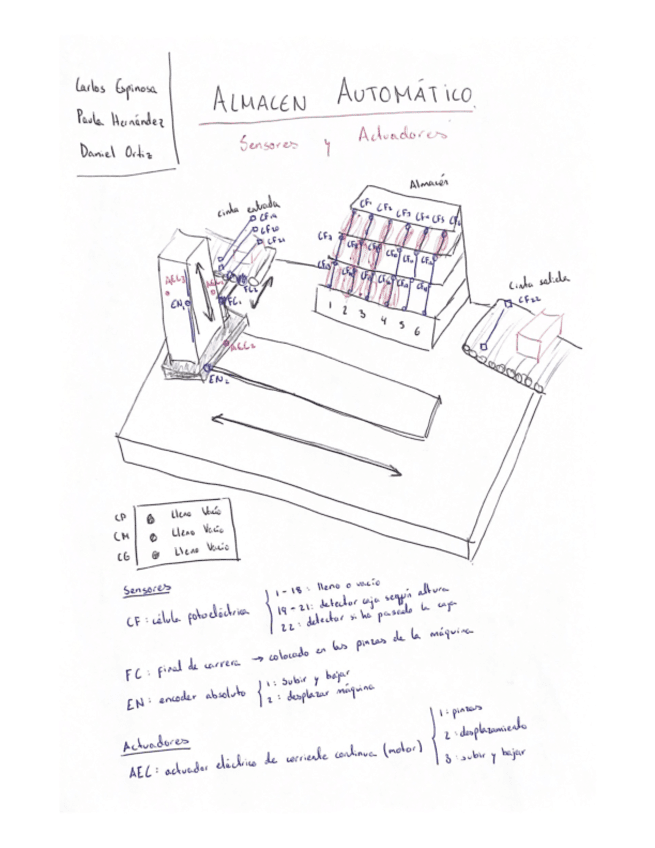 Carlos Espinosa
Paula Hernández
Daniel Ortiz
ALMACEN AUTOMÁTICO
Sensores y Actuadores
cinta entrada
CF19
CF20
CF21
Almacén
CF1 CF2 CF3 CF4 CF5 CF6
1 2 3 4 5 6
Cinta salida
CF22
AEC3
EN1
FC1
FC2
AEC2
EN2
CP Lleno Vacío
CM Lleno Vacío
CG Lleno Vacío
Sensores
CF: célula fotoeléctrica
1-18: lleno o vacío
19-21: detector caja según altura
22: detector si ha pasado la caja
FC: final de carrera → colocado en las pinzas de la máquina
EN: encoder absoluto
1: subir y bajar
2: desplazar máquina
Actuadores
AEC: actuador eléctrico de corriente continua (motor)
1: pinzas
2: desplazamiento
3: subir y bajar